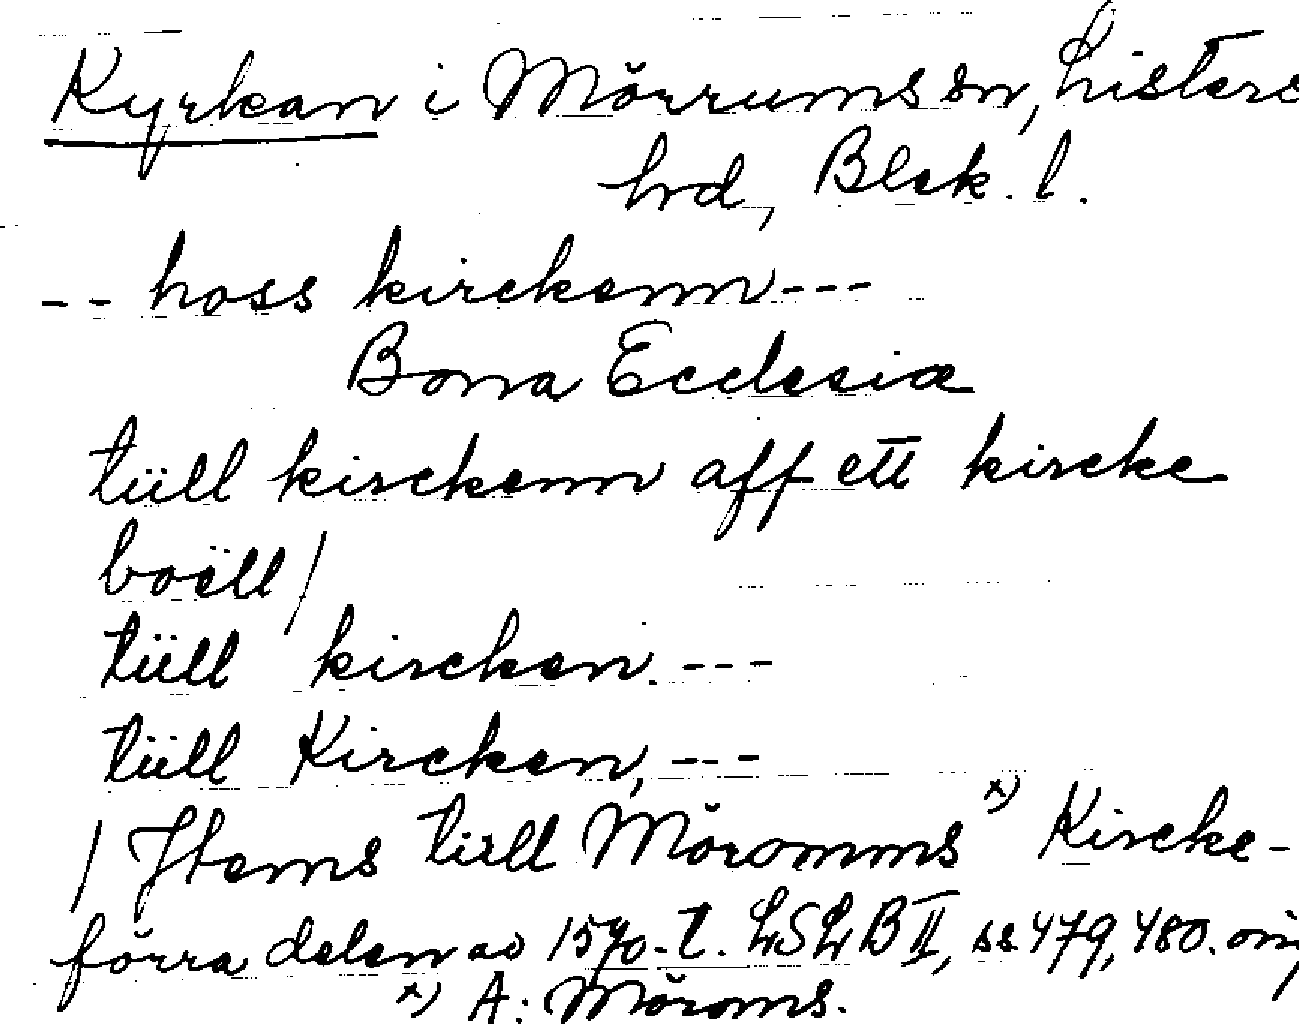 Kyrkan i Mörrums sn, Listers
hrd, Blek. l.
-- hoss kirckenn ---
Bona Ecclesiæ
tüll kirckenn aff ett kircke
boëll /
tüll kircken. ---
tüll Kircken, ---
/ Jtems tüll Möromms x) Kircke-
förra delen av 1570-t. LSLB II, ss 479, 480.
x) A: Möroms.